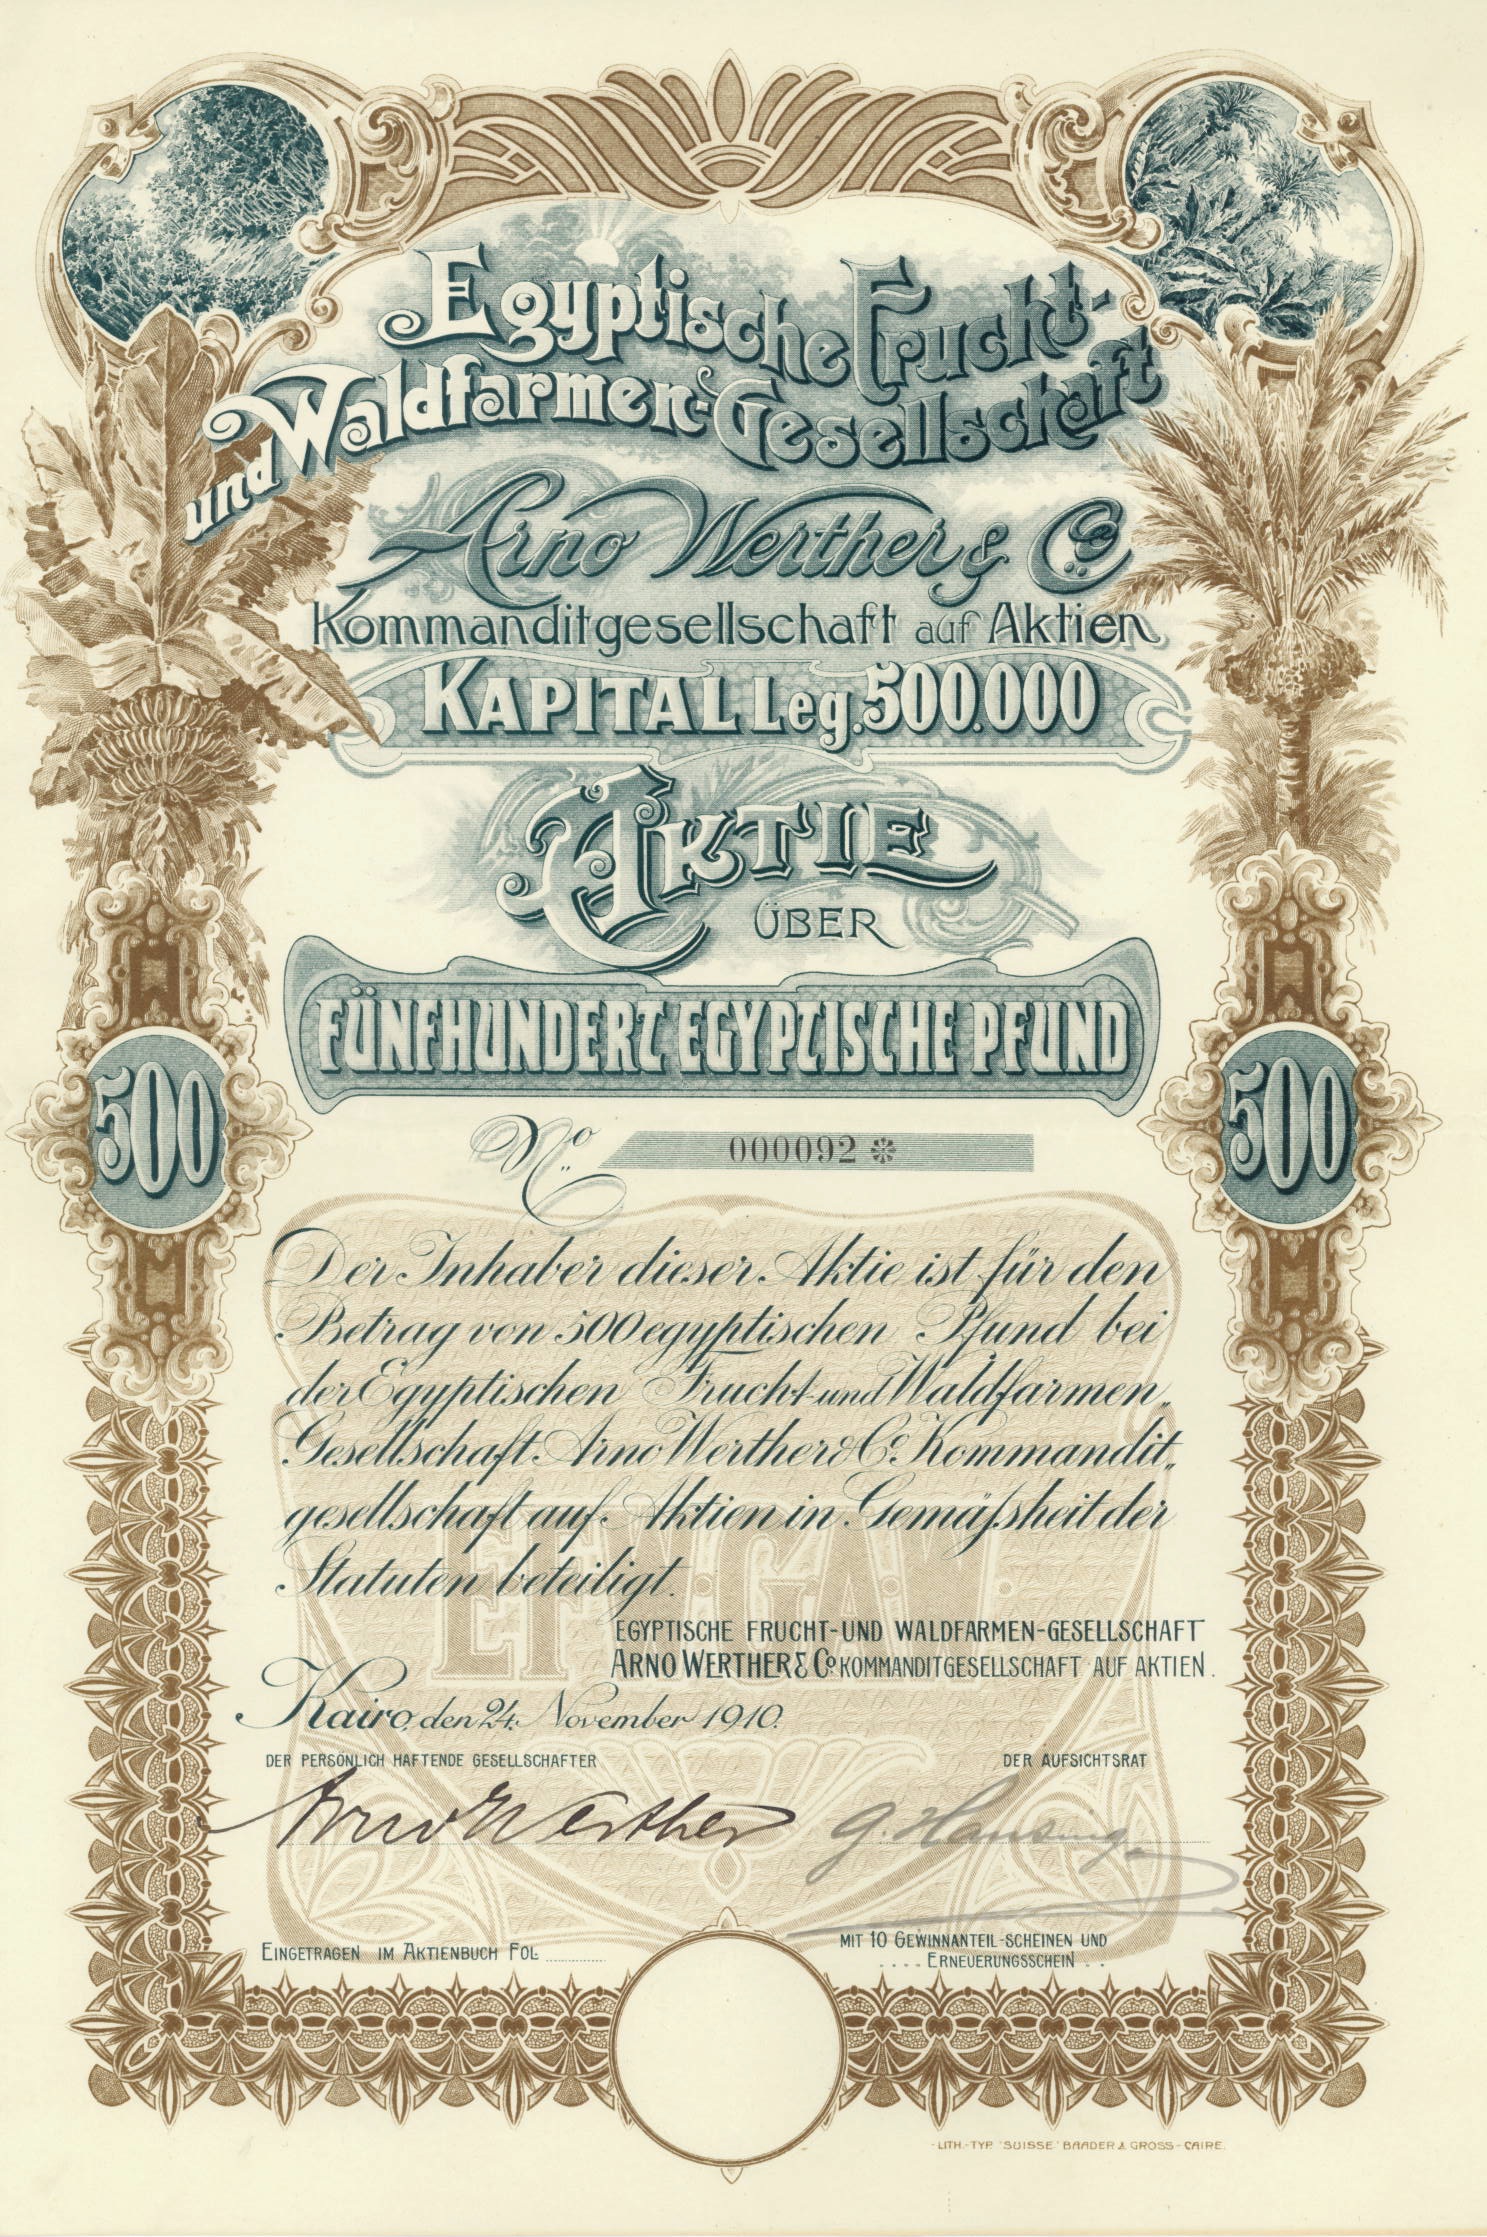 Egyptische Frucht-
und Waldfarmen-Gesellschaft
Arno Werther & Co
Kommanditgesellschaft auf Aktien
KAPITAL Leg. 500.000
AKTIE
ÜBER
FÜNFHUNDERT EGYPTISCHE PFUND
500
500
No 000092 *
Der Inhaber dieser Aktie ist für den
Betrag von 500 egyptischen Pfund bei
der Egyptischen Frucht- und Waldfarmen-
Gesellschaft Arno Werther & Co Kommandit-
gesellschaft auf Aktien in Gemäßheit der
Statuten beteiligt.
E.F.W.G.A.W.
EGYPTISCHE FRUCHT-UND WALDFARMEN-GESELLSCHAFT
ARNO WERTHER & Co KOMMANDITGESELLSCHAFT AUF AKTIEN.
Kairo, den 24. November 1910.
DER PERSÖNLICH HAFTENDE GESELLSCHAFTER
DER AUFSICHTSRAT
Arno Werther
EINGETRAGEN IM AKTIENBUCH FOL
MIT 10 GEWINNANTEIL-SCHEINEN UND
ERNEUERUNGSSCHEIN
LITH.-TYP. "SUISSE" BAADER & GROSS - CAIRE.